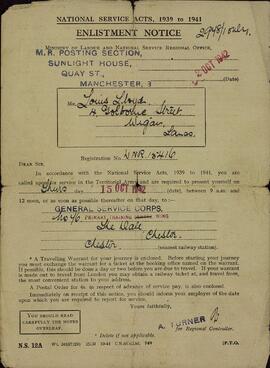 NATIONAL SERVICE ACTS, 1939 to 1941
ENLISTMENT NOTICE
MINISTRY OF LABOUR AND NATIONAL SERVICE REGIONAL OFFICE,
M.R. POSTING SECTION,
SUNLIGHT HOUSE,
QUAY ST.,
MANCHESTER, 3
2 OCT 1942
(Date)
Mr. Louis Lloyd
Street
Wigan
Lancs.
Registration No.
DEAR SIR,
In accordance with the National Service Acts, 1939 to 1941, you are
called upon for service in the Territorial Army and are required to present yourself on
Thurs 15 OCT 1942 (date), between 9 a.m. and
12 noon, or as soon as possible thereafter on that day, to:—
GENERAL SERVICE CORPS.
No 76 PRIMARY TRAINING WING
The Dale
Chester
Chester (nearest railway station).
* A Travelling Warrant for your journey is enclosed. Before starting your journey
you must exchange the warrant for a ticket at the booking office named on the warrant.
If possible, this should be done a day or two before you are due to travel. If your warrant
is made out to travel from London you may obtain a railway ticket at, and travel from,
the most convenient station to your address.
A Postal Order for 4s. in respect of advance of service pay, is also enclosed.
Immediately on receipt of this notice, you should inform your employer of the date
upon which you are required to report for service.
Yours faithfully,
A. TURNER
for Regional Controller.
YOU SHOULD READ
CAREFULLY THE NOTES
OVERLEAF.
* Delete if not applicable.
N.S. 12A
[P.T.O.